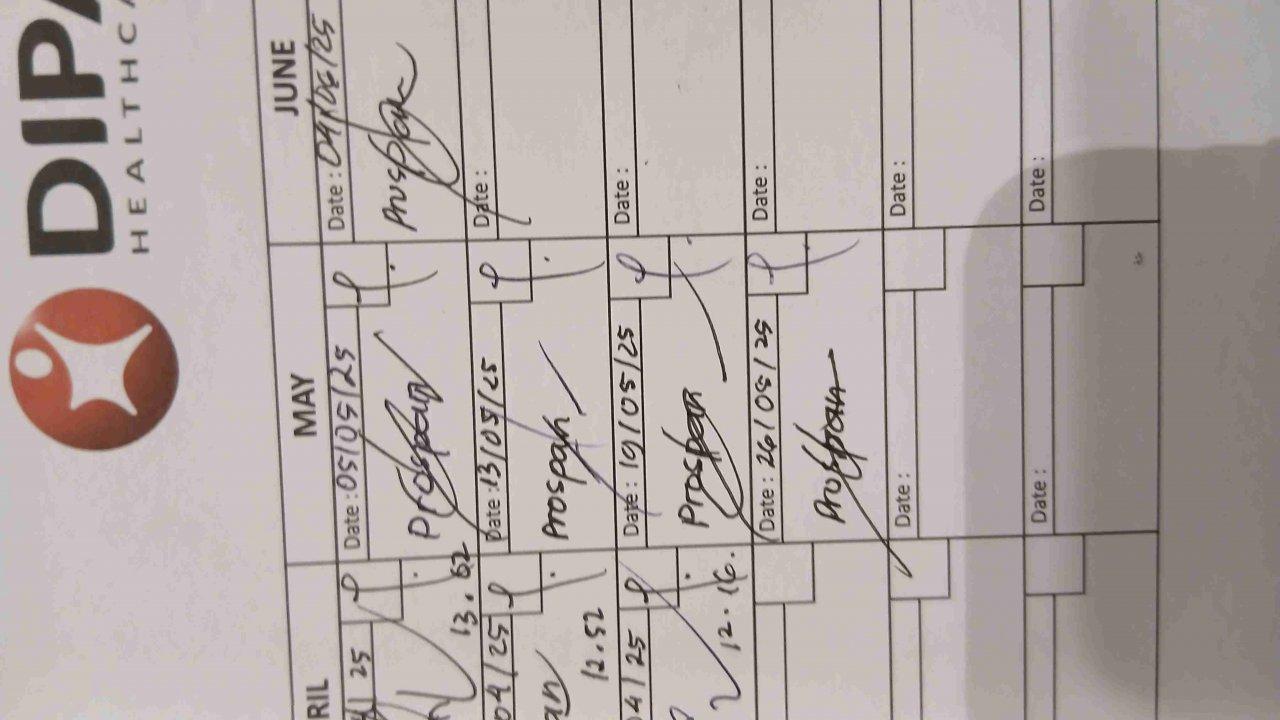 DIPA
HEALTHCA
RIL
MAY
JUNE
25
Date : 05/05/25
Date : 04/06/25
13.
Prospan
Prospan
04/25
Date : 13/05/25
Date :
an
12.52
Prospan
04/25
Date : 19/05/25
Date :
12.16.
Prospan
Date : 26/05/25
Date :
Prospan
Date :
Date :
Date :
Date :